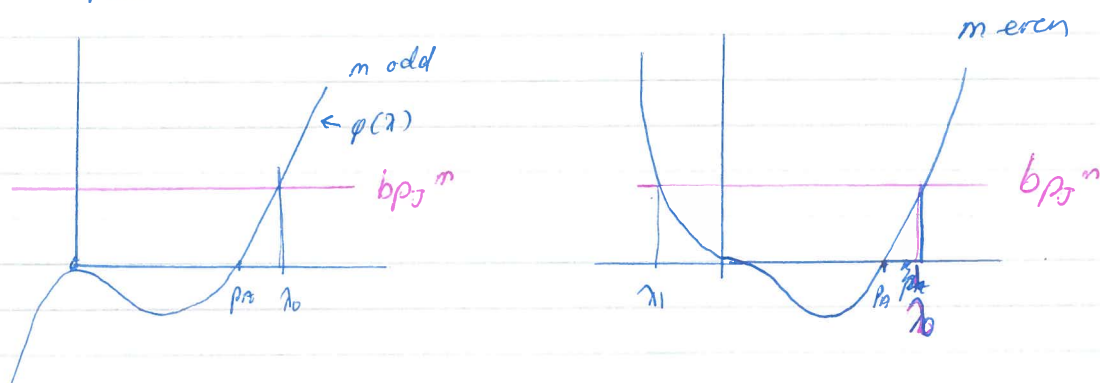 m odd
← φ(λ)
bρ_J^m
ρ_A
λ_0
m even
bρ_J^m
λ_1
ρ_A
λ_0